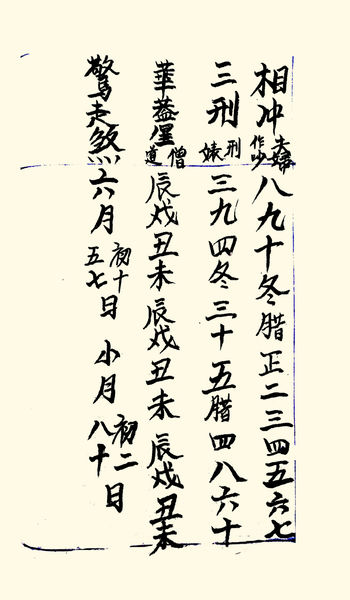 相冲 夫婦作少 八九十冬腊正二三四五六七
三刑 刑婊 三九四冬三十五腊四八六十
華蓋星 僧道 辰戌丑未辰戌丑未辰戌丑未
驚走煞 六月初十五七日 小月初二八十日